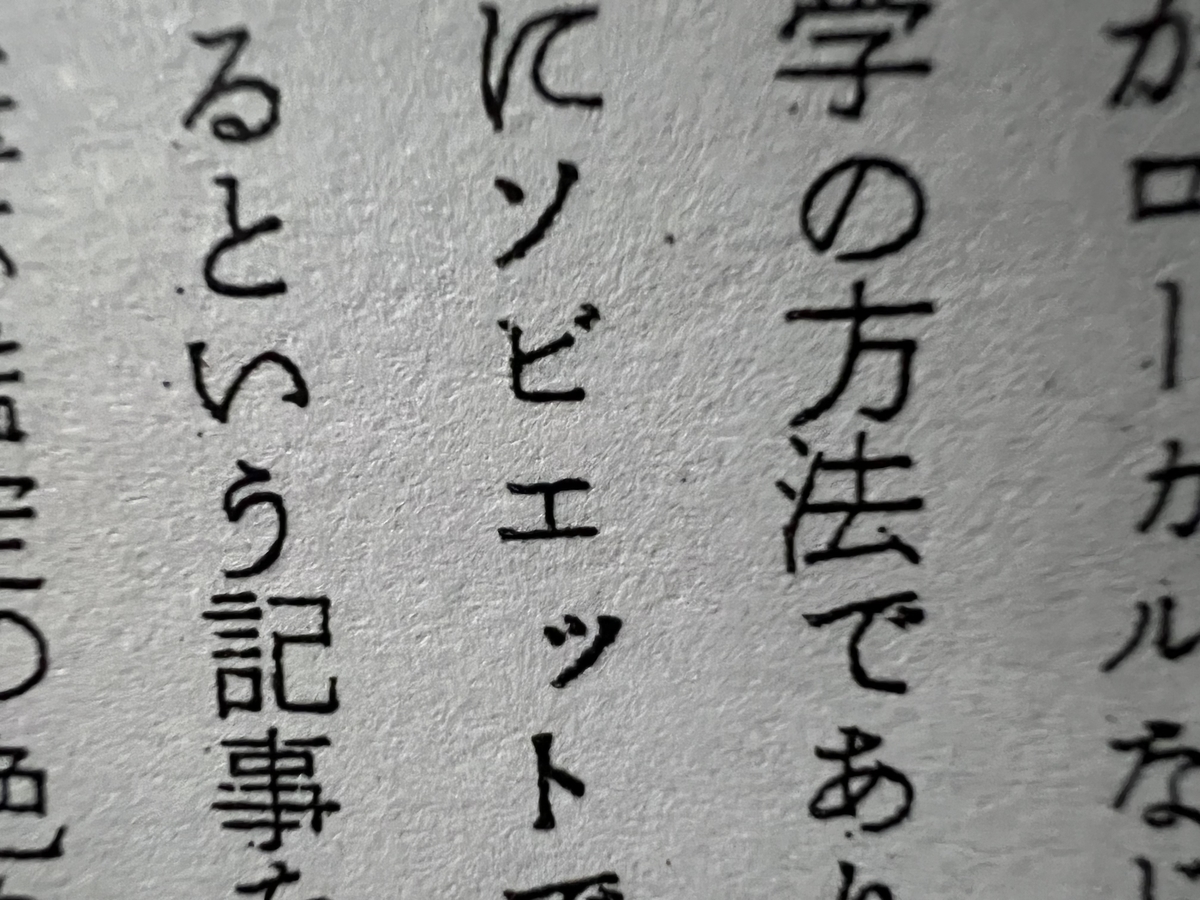 がローカルな
学の方法であり
にソビエットで
るという記事